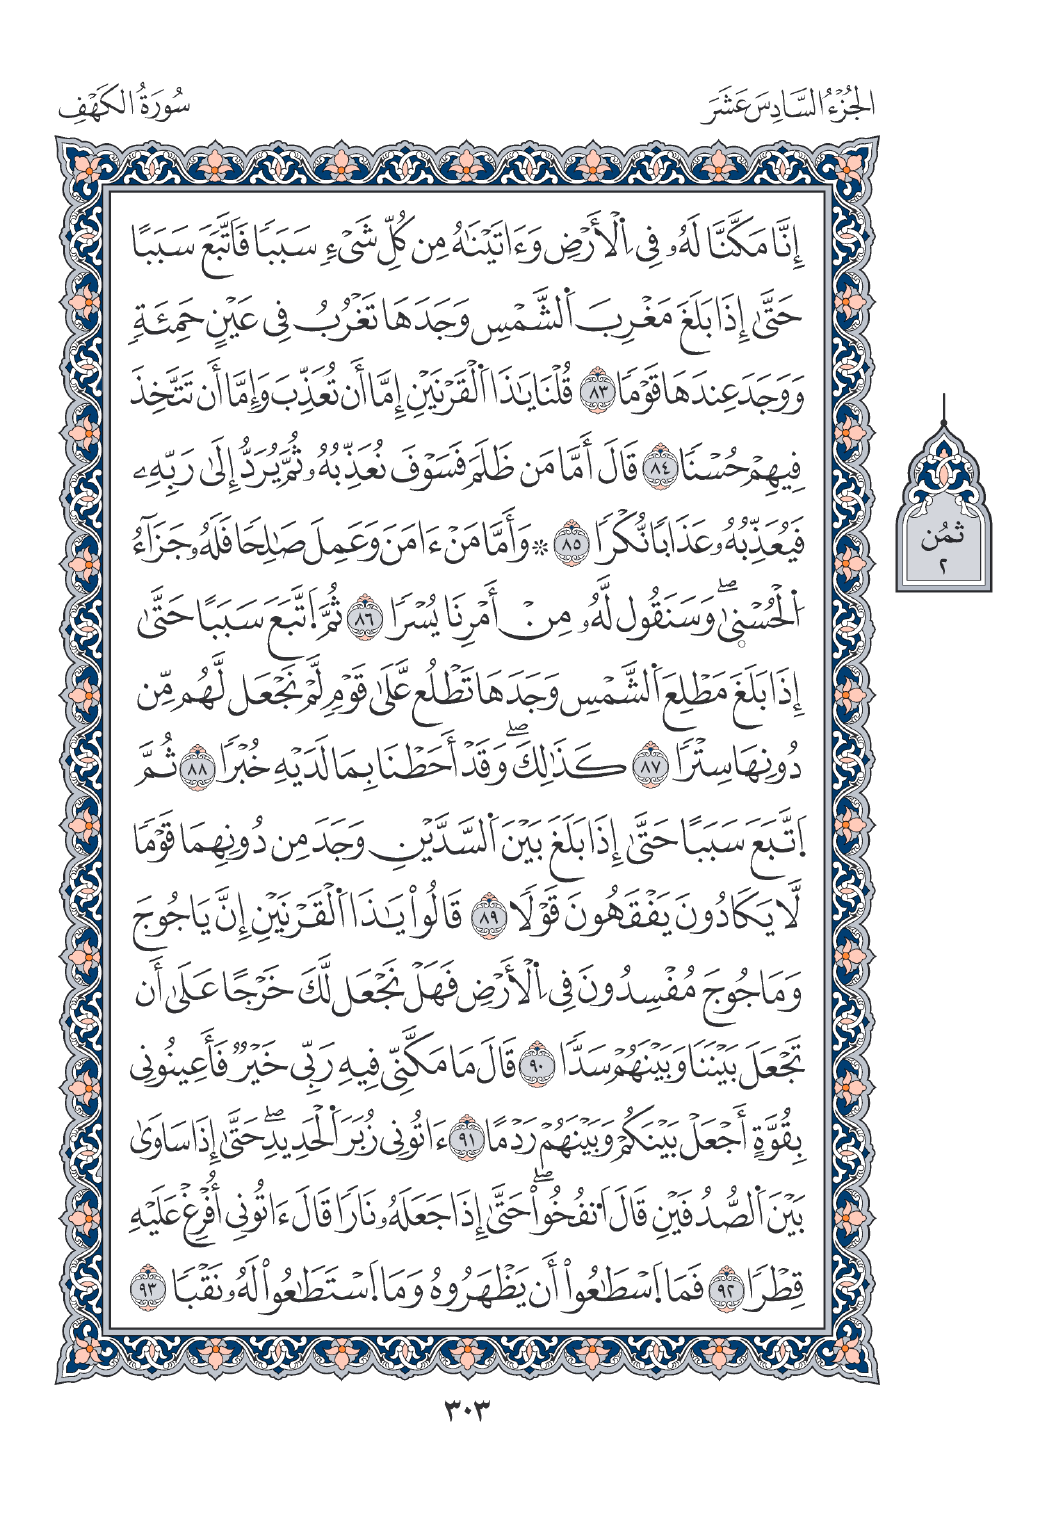 الجُزْءُ السَّادِسَ عَشَرَ
سُورَةُ الكَهْفِ
إِنَّا مَكَّنَّا لَهُۥ فِي اِ۬لْأَرْضِ وَءَاتَيْنَٰهُ مِن كُلِّ شَيْءٖ سَبَبٗا فَاتَّبَعَ سَبَبًا
حَتَّىٰ إِذَا بَلَغَ مَغْرِبَ اَ۬لشَّمْسِ وَجَدَهَا تَغْرُبُ فِي عَيْنٍ حَمِئَةٖ
وَوَجَدَ عِندَهَا قَوْمٗا ٨٣ قُلْنَا يَٰذَا اَ۬لْقَرْنَيْنِ إِمَّا أَن تُعَذِّبَ وَإِمَّا أَن تَتَّخِذَ
فِيهِمْ حُسْنٗا ٨٤ قَالَ أَمَّا مَن ظَلَمَ فَسَوْفَ نُعَذِّبُهُۥ ثُمَّ يُرَدُّ إِلَىٰ رَبِّهِۦ
فَيُعَذِّبُهُۥ عَذَابٗا نُّكْرٗا ٨٥ ۞ وَأَمَّا مَنْ ءَامَنَ وَعَمِلَ صَٰلِحٗا فَلَهُۥ جَزَآءُ
اُ۬لْحُسْنىٰۖ وَسَنَقُولُ لَهُۥ مِنْ أَمْرِنَا يُسْرٗا ٨٦ ثُمَّ اَ۪تَّبَعَ سَبَبًا حَتَّىٰ
إِذَا بَلَغَ مَطْلِعَ اَ۬لشَّمْسِ وَجَدَهَا تَطْلُع عَّلَىٰ قَوْمٖ لَّمْ نَجْعَل لَّهُم مِّن
دُونِهَا سِتْرٗا ٨٧ كَذَٰلِكَۖ وَقَدْ أَحَطْنَا بِمَا لَدَيْهِ خُبْرٗا ٨٨ ثُمَّ
اَ۪تَّبَعَ سَبَبًا حَتَّىٰ إِذَا بَلَغَ بَيْنَ اَ۬لسَّدَّيْنِ وَجَدَ مِن دُونِهِمَا قَوْمٗا
لَّا يَكَادُونَ يَفْقَهُونَ قَوْلٗا ٨٩ قَالُواْ يَٰذَا اَ۬لْقَرْنَيْنِ إِنَّ يَاجُوجَ
وَمَاجُوجَ مُفْسِدُونَ فِي اِ۬لْأَرْضِ فَهَلْ نَجْعَل لَّكَ خَرْجًا عَلَىٰ أَن
تَجْعَلَ بَيْنَنَا وَبَيْنَهُمْ سَدّٗا ٩٠ قَالَ مَا مَكَّنِّي فِيهِ رَبِّي خَيْرٞ فَأَعِينُونِي
بِقُوَّةٍ أَجْعَلْ بَيْنَكُمْ وَبَيْنَهُمْ رَدْمًا ٩١ ءَاتُونِي زُبَرَ اَ۬لْحَدِيدِۖ حَتَّىٰ إِذَا سَاوَىٰ
بَيْنَ اَ۬لصُّدُفَيْنِ قَالَ اَ۟نفُخُواْۖ حَتَّىٰ إِذَا جَعَلَهُۥ نَارٗا قَالَ ءَاتُونِي أُفْرِغْ عَلَيْهِ
قِطْرٗا ٩٢ فَمَا اَ۪سْطَٰعُواْ أَن يَظْهَرُوهُ وَمَا اَ۪سْتَطَٰعُواْ لَهُۥ نَقْبٗا ٩٣
ثُمُن
٢
٣٠٣